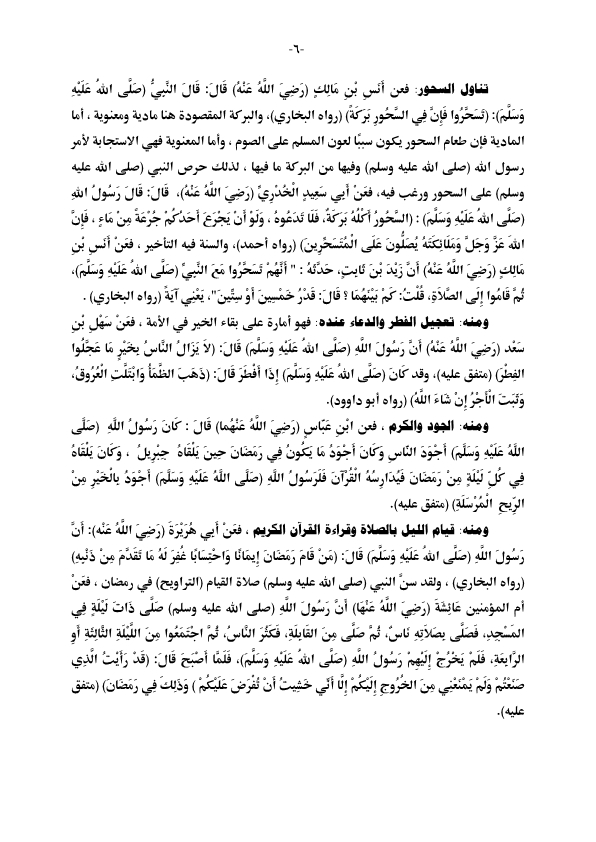 -٦-
تناول السحور: فعن أَنَسِ بْنِ مَالِكٍ (رَضِيَ اللَّهُ عَنْهُ) قَالَ: قَالَ النَّبِيُّ (صَلَّى اللهُ عَلَيْهِ
وَسَلَّمَ): (تَسَحَّرُوا فَإِنَّ فِي السَّحُورِ بَرَكَةً) (رواه البخاري)، والبركة المقصودة هنا مادية ومعنوية ، أما
المادية فإن طعام السحور يكون سببًا لعون المسلم على الصوم ، وأما المعنوية فهي الاستجابة لأمر
رسول الله (صلى الله عليه وسلم) وفيها من البركة ما فيها ، لذلك حرص النبي (صلى الله عليه
وسلم) على السحور ورغب فيه، فعَنْ أَبِي سَعِيدٍ الْخُدْرِيِّ (رَضِيَ اللَّهُ عَنْهُ)، قَالَ: قَالَ رَسُولُ اللهِ
(صَلَّى اللهُ عَلَيْهِ وَسَلَّمَ) : (السَّحُورُ أَكْلُهُ بَرَكَةٌ، فَلَا تَدَعُوهُ ، وَلَوْ أَنْ يَجْرَعَ أَحَدُكُمْ جُرْعَةً مِنْ مَاءٍ ، فَإِنَّ
اللهَ عَزَّ وَجَلَّ وَمَلَائِكَتَهُ يُصَلُّونَ عَلَى الْمُتَسَحِّرِينَ) (رواه أحمد)، والسنة فيه التأخير ، فعَنْ أَنَسِ بْنِ
مَالِكٍ (رَضِيَ اللَّهُ عَنْهُ) أَنَّ زَيْدَ بْنَ ثَابِتٍ، حَدَّثَهُ : " أَنَّهُمْ تَسَحَّرُوا مَعَ النَّبِيِّ (صَلَّى اللهُ عَلَيْهِ وَسَلَّمَ)،
ثُمَّ قَامُوا إِلَى الصَّلَاةِ، قُلْتُ: كَمْ بَيْنَهُمَا ؟ قَالَ: قَدْرُ خَمْسِينَ أَوْ سِتِّينَ"، يَعْنِي آيَةً (رواه البخاري) .
ومنه: تعجيل الفطر والدعاء عنده: فهو أمارة على بقاء الخير في الأمة ، فعَنْ سَهْلِ بْنِ
سَعْد (رَضِيَ اللَّهُ عَنْهُ) أَنَّ رَسُولَ اللَّهِ (صَلَّى اللهُ عَلَيْهِ وَسَلَّمَ) قَالَ: (لاَ يَزَالُ النَّاسُ بِخَيْرٍ مَا عَجَّلُوا
الفِطْرَ) (متفق عليه)، وقد كَانَ (صَلَّى اللهُ عَلَيْهِ وَسَلَّمَ) إِذَا أَفْطَرَ قَالَ: (ذَهَبَ الظَّمَأُ وَابْتَلَّتِ الْعُرُوقُ،
وَثَبَتَ الْأَجْرُ إِنْ شَاءَ اللَّهُ) (رواه أبو داوود).
ومنه: الجود والكرم ، فعن ابْنِ عَبَّاسٍ (رَضِيَ اللَّهُ عَنْهُما) قَالَ : كَانَ رَسُولُ اللَّهِ (صَلَّى
اللَّهُ عَلَيْهِ وَسَلَّمَ) أَجْوَدَ النَّاسِ وَكَانَ أَجْوَدُ مَا يَكُونُ فِي رَمَضَانَ حِينَ يَلْقَاهُ جِبْرِيلُ ، وَكَانَ يَلْقَاهُ
فِي كُلِّ لَيْلَةٍ مِنْ رَمَضَانَ فَيُدَارِسُهُ الْقُرْآنَ فَلَرَسُولُ اللَّهِ (صَلَّى اللَّهُ عَلَيْهِ وَسَلَّمَ) أَجْوَدُ بِالْخَيْرِ مِنَ
الرِّيحِ الْمُرْسَلَةِ) (متفق عليه).
ومنه: قيام الليل بالصلاة وقراءة القرآن الكريم ، فعَنْ أَبِي هُرَيْرَةَ (رَضِيَ اللَّهُ عَنْه): أَنَّ
رَسُولَ اللَّهِ (صَلَّى اللهُ عَلَيْهِ وَسَلَّمَ) قَالَ: (مَنْ قَامَ رَمَضَانَ إِيمَانًا وَاحْتِسَابًا غُفِرَ لَهُ مَا تَقَدَّمَ مِنْ ذَنْبِهِ)
(رواه البخاري) ، ولقد سنَّ النبي (صلى الله عليه وسلم) صلاة القيام (التراويح) في رمضان ، فعَنْ
أم المؤمنين عَائِشَةَ (رَضِيَ اللَّهُ عَنْهَا) أَنَّ رَسُولَ اللَّهِ (صلى الله عليه وسلم) صَلَّى ذَاتَ لَيْلَةٍ فِي
المَسْجِدِ، فَصَلَّى بِصَلاَتِهِ نَاسٌ، ثُمَّ صَلَّى مِنَ القَابِلَةِ، فَكَثُرَ النَّاسُ، ثُمَّ اجْتَمَعُوا مِنَ اللَّيْلَةِ الثَّالِثَةِ أَوِ
الرَّابِعَةِ، فَلَمْ يَخْرُجْ إِلَيْهِمْ رَسُولُ اللَّهِ (صَلَّى اللهُ عَلَيْهِ وَسَلَّمَ)، فَلَمَّا أَصْبَحَ قَالَ: (قَدْ رَأَيْتُ الَّذِي
صَنَعْتُمْ وَلَمْ يَمْنَعْنِي مِنَ الخُرُوجِ إِلَيْكُمْ إِلَّا أَنِّي خَشِيتُ أَنْ تُفْرَضَ عَلَيْكُمْ ) وَذَلِكَ فِي رَمَضَانَ) (متفق
عليه).